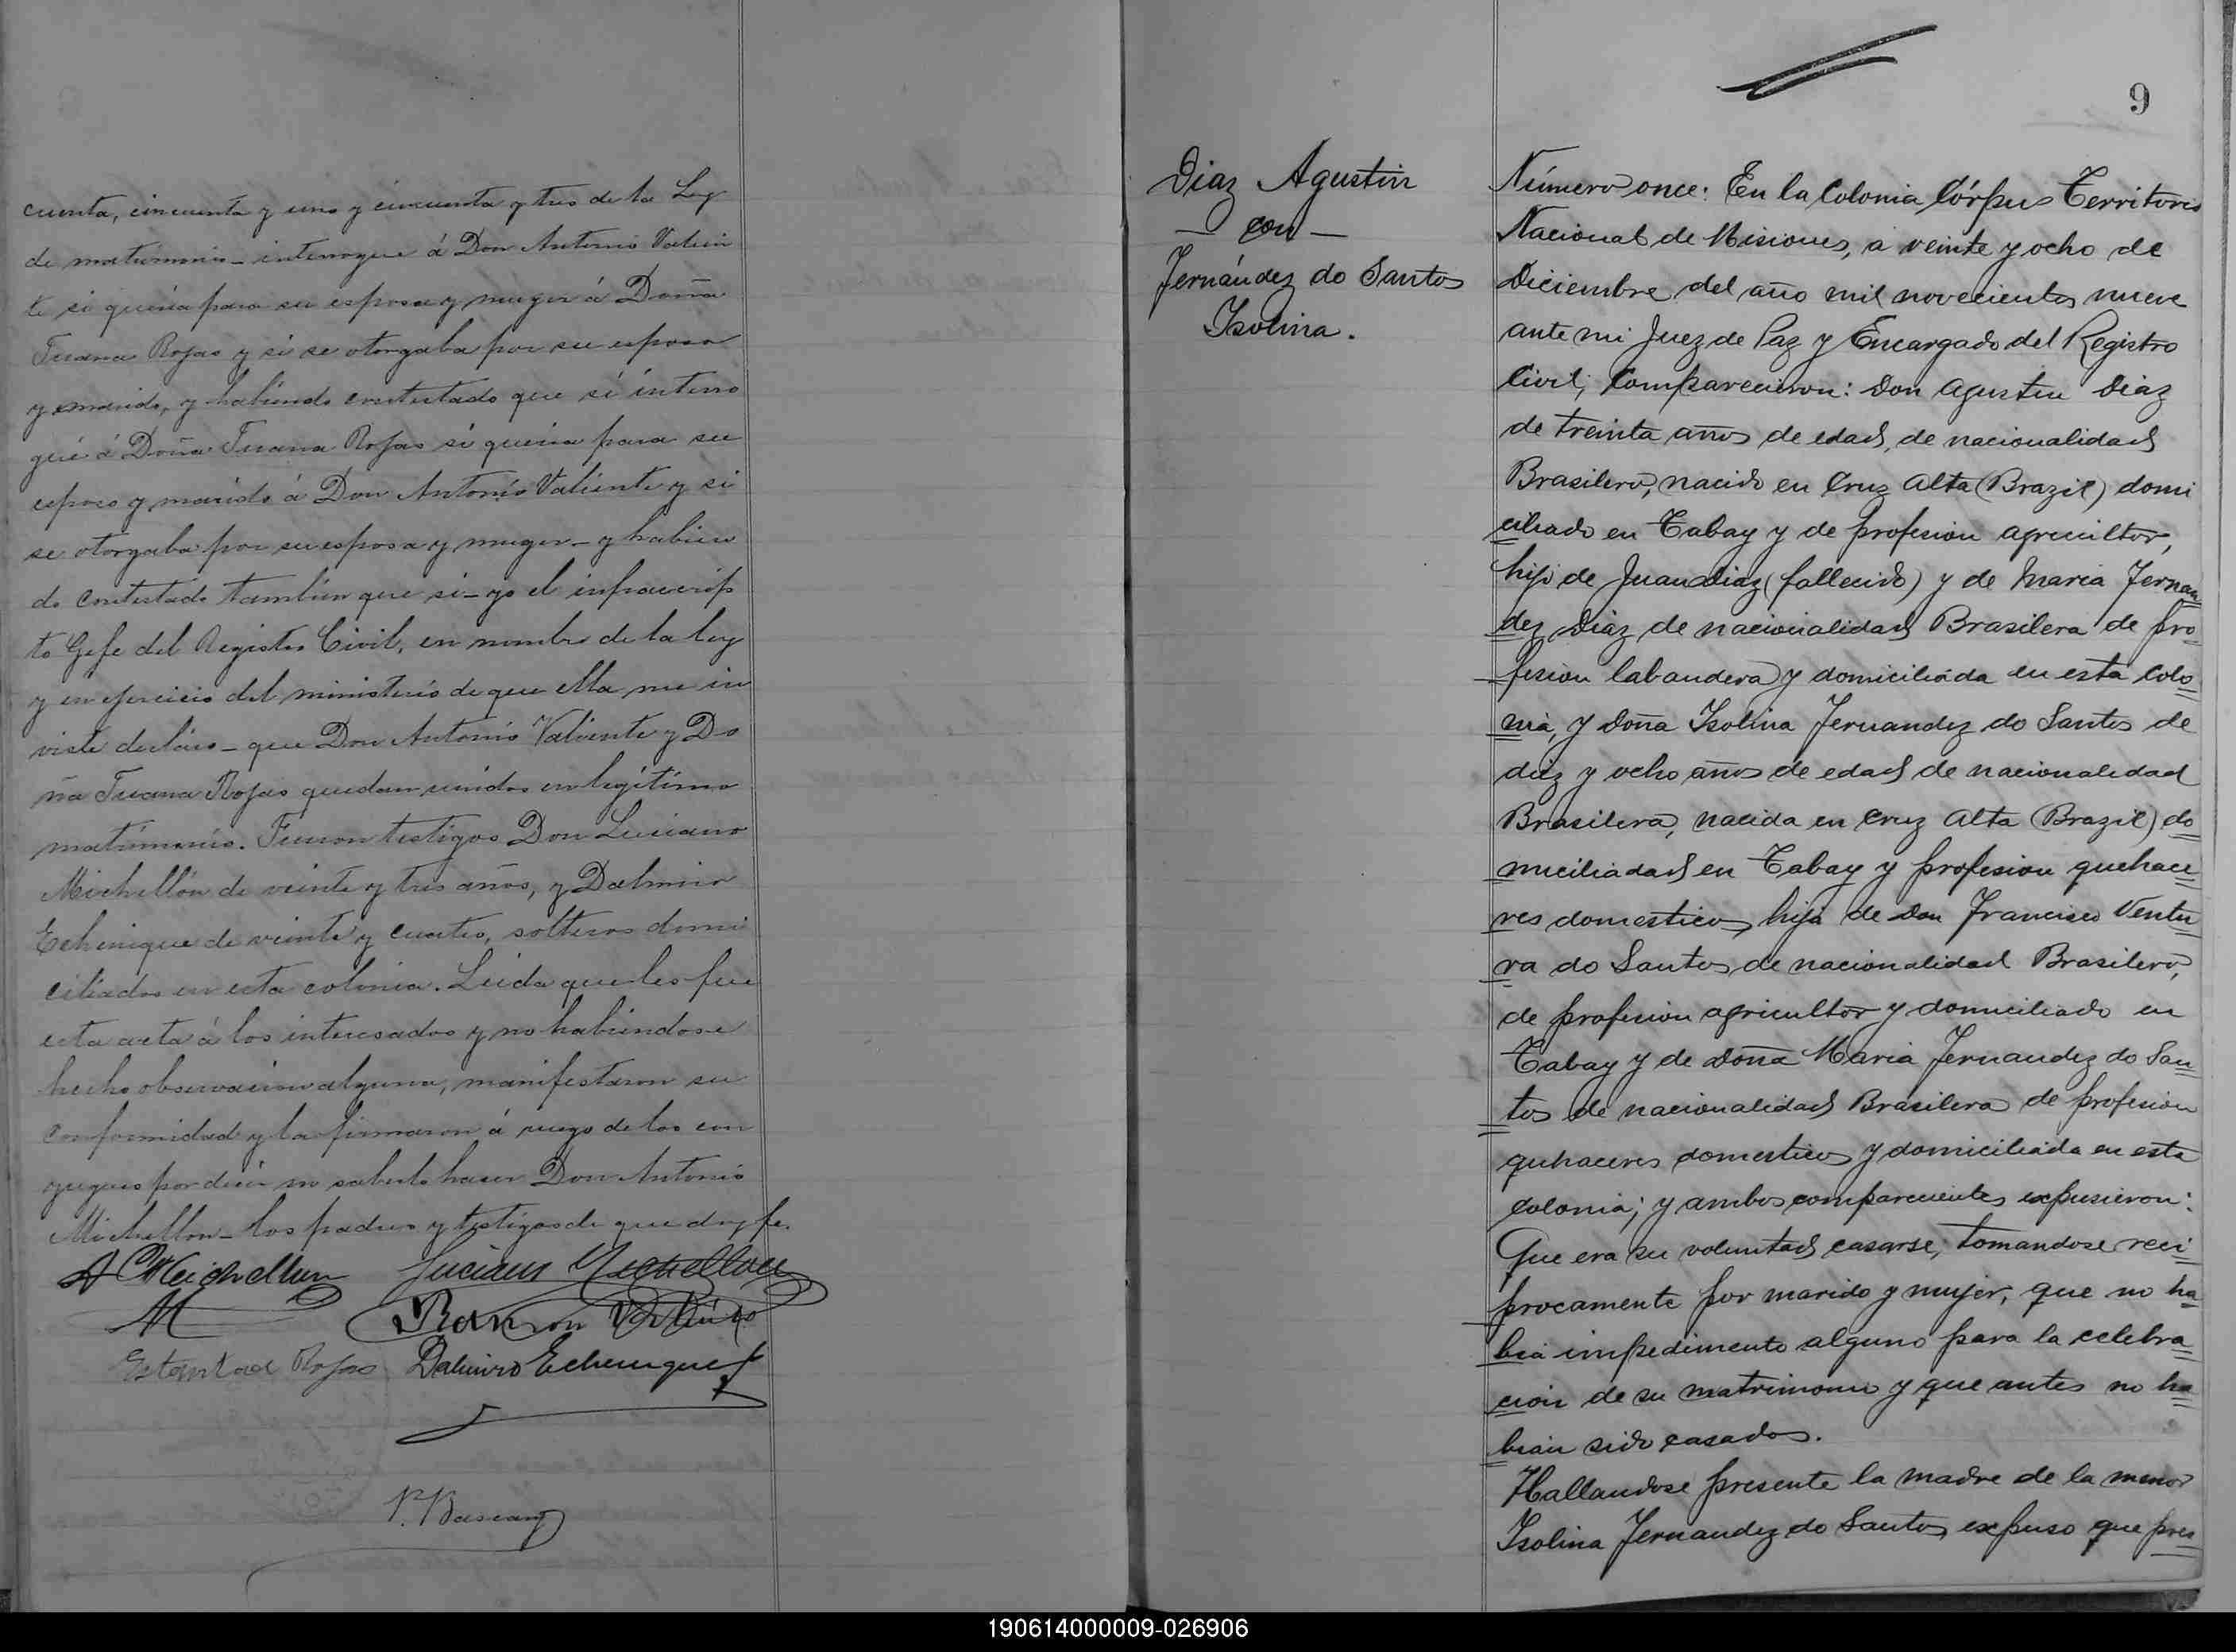 cuenta, cincuenta y uno y cincuenta y tres de la Ley
de matrimonio_ interrogue á Don Antonio Valien
te si queria para su esposa y muger á Doña
Juana Rojas y si se otorgaba por su esposo
y marido, y habiendo contestado que si interro
gué á Doña Juana Rojas si queria para su
esposo y marido á Don Antonio Valiente y si
se otorgaba por su esposa y muger_ y habien
do contestado tambien que si_ yo el infrascrip
to Gefe del Registro Civil, en nombre de la ley
y en ejercicio del ministerio de que ella me in
viste declaro_ que Don Antonio Valiente y Do
ña Juana Rojas quedan unidos en legítimo
matrimonio. Fueron testigos Don Luciano
Michellón de veinte y tres años, y Dalmiro
Echenique de veinte y cuatro, solteros domi
ciliados en esta colonia. Leida que les fue
esta acta á los interesados y no habiendose
hecho observacion alguna, manifestaron su
conformidad y la firmaron á ruego de los con
yugues por decir no saberlo hacer Don Antonio
Michellon_ los padres y testigos de que doy fe.
A Michellon Luciano Michellon
Ramon
Rojas Dalmiro Echenique
9
Diaz Agustin
— con —
Fernández do Santos
Isolina.
Número once: En la Colonia Córpus Territorio
Nacional de Misiones, a veinte y ocho de
Diciembre del año mil novecientos nueve
ante mi Juez de Paz y Encargado del Registro
Civil, Comparecieron: Don Agustin Diaz
de treinta años de edad, de nacionalidad
Brasilero, nacido en Cruz Alta (Brazil) domi
ciliado en Tabay y de profesion agricultor,
hijo de Juan Diaz (fallecido) y de Maria Fernan
dez Diaz de nacionalidad Brasilera de pro
fesion labandera y domiciliada en esta Colo
nia, y Doña Isolina Fernandez do Santos de
diez y ocho años de edad de nacionalidad
Brasilera, nacida en Cruz Alta (Brazil) do
miciliada en Tabay y profesion quehace
res domesticos, hija de Don Francisco Ventu
ra do Santos, de nacionalidad Brasilero,
de profesion agricultor y domiciliado en
Tabay y de Doña Maria Fernandez do San
tos de nacionalidad Brasilera de profesion
quhaceres domesticos y domiciliada en esta
colonia; y ambos comparecientes expusieron:
Que era su voluntad casarse, tomandose reci
procamente por marido y mujer, que no ha
bia impedimento alguno para la celebra
cion de su matrimonio y que antes no ha
bian sido casados.
Hallandose presente la madre de la menor
Isolina Fernandez do Santos, expuso que pres
190614000009-026906